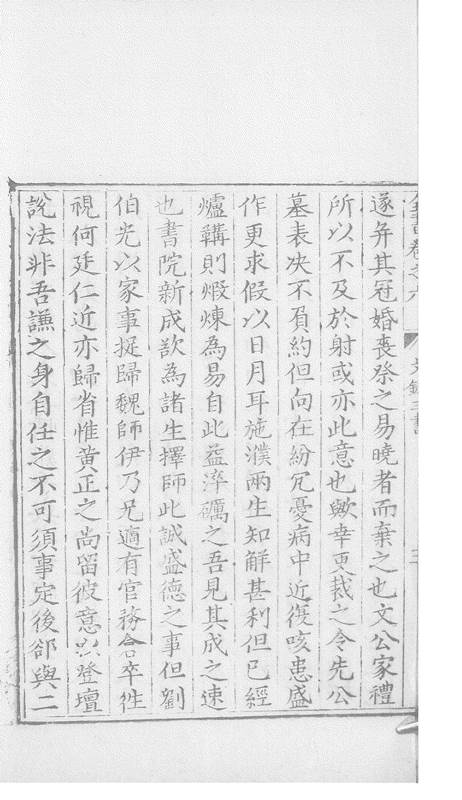 遂弁其冠婚喪祭之易曉者而棄之也文公家禮
所以不及於射或亦此意也歟幸更裁之令先公
墓表决不負約但向在紛冗憂病中近復咳患盛
作更求假以日月耳施濮兩生知解甚利但已經
爐鞲則煅煉為易自此益淬礪之吾見其成之速
也書院新成欲為諸生擇師此誠盛德之事但劉
伯光以家事促歸魏師伊乃兄適有官務倉卒徃
視何廷仁近亦歸省惟黃正之尚留彼意以登壇
說法非吾謙之身自任之不可須事定後郤與二